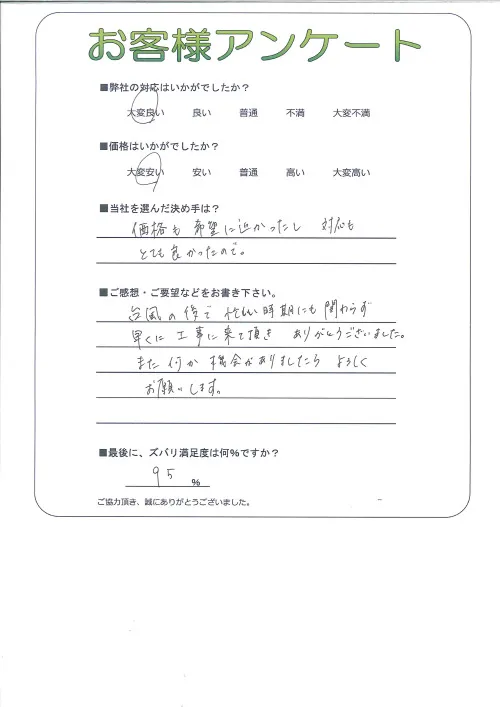 お客様アンケート
■弊社の対応はいかがでしたか？
大変良い 良い 普通 不満 大変不満
■価格はいかがでしたか？
大変安い 安い 普通 高い 大変高い
■当社を選んだ決め手は？
価格も希望に近かったし 対応も
とても良かったので。
■ご感想・ご要望などをお書き下さい。
台風の後で忙しい時期にも関わらず
早くに工事に来て頂き ありがとうございました。
また何か機会がありましたら よろしく
お願いします。
■最後に、ズバリ満足度は何%ですか？
95 %
ご協力頂き、誠にありがとうございました。